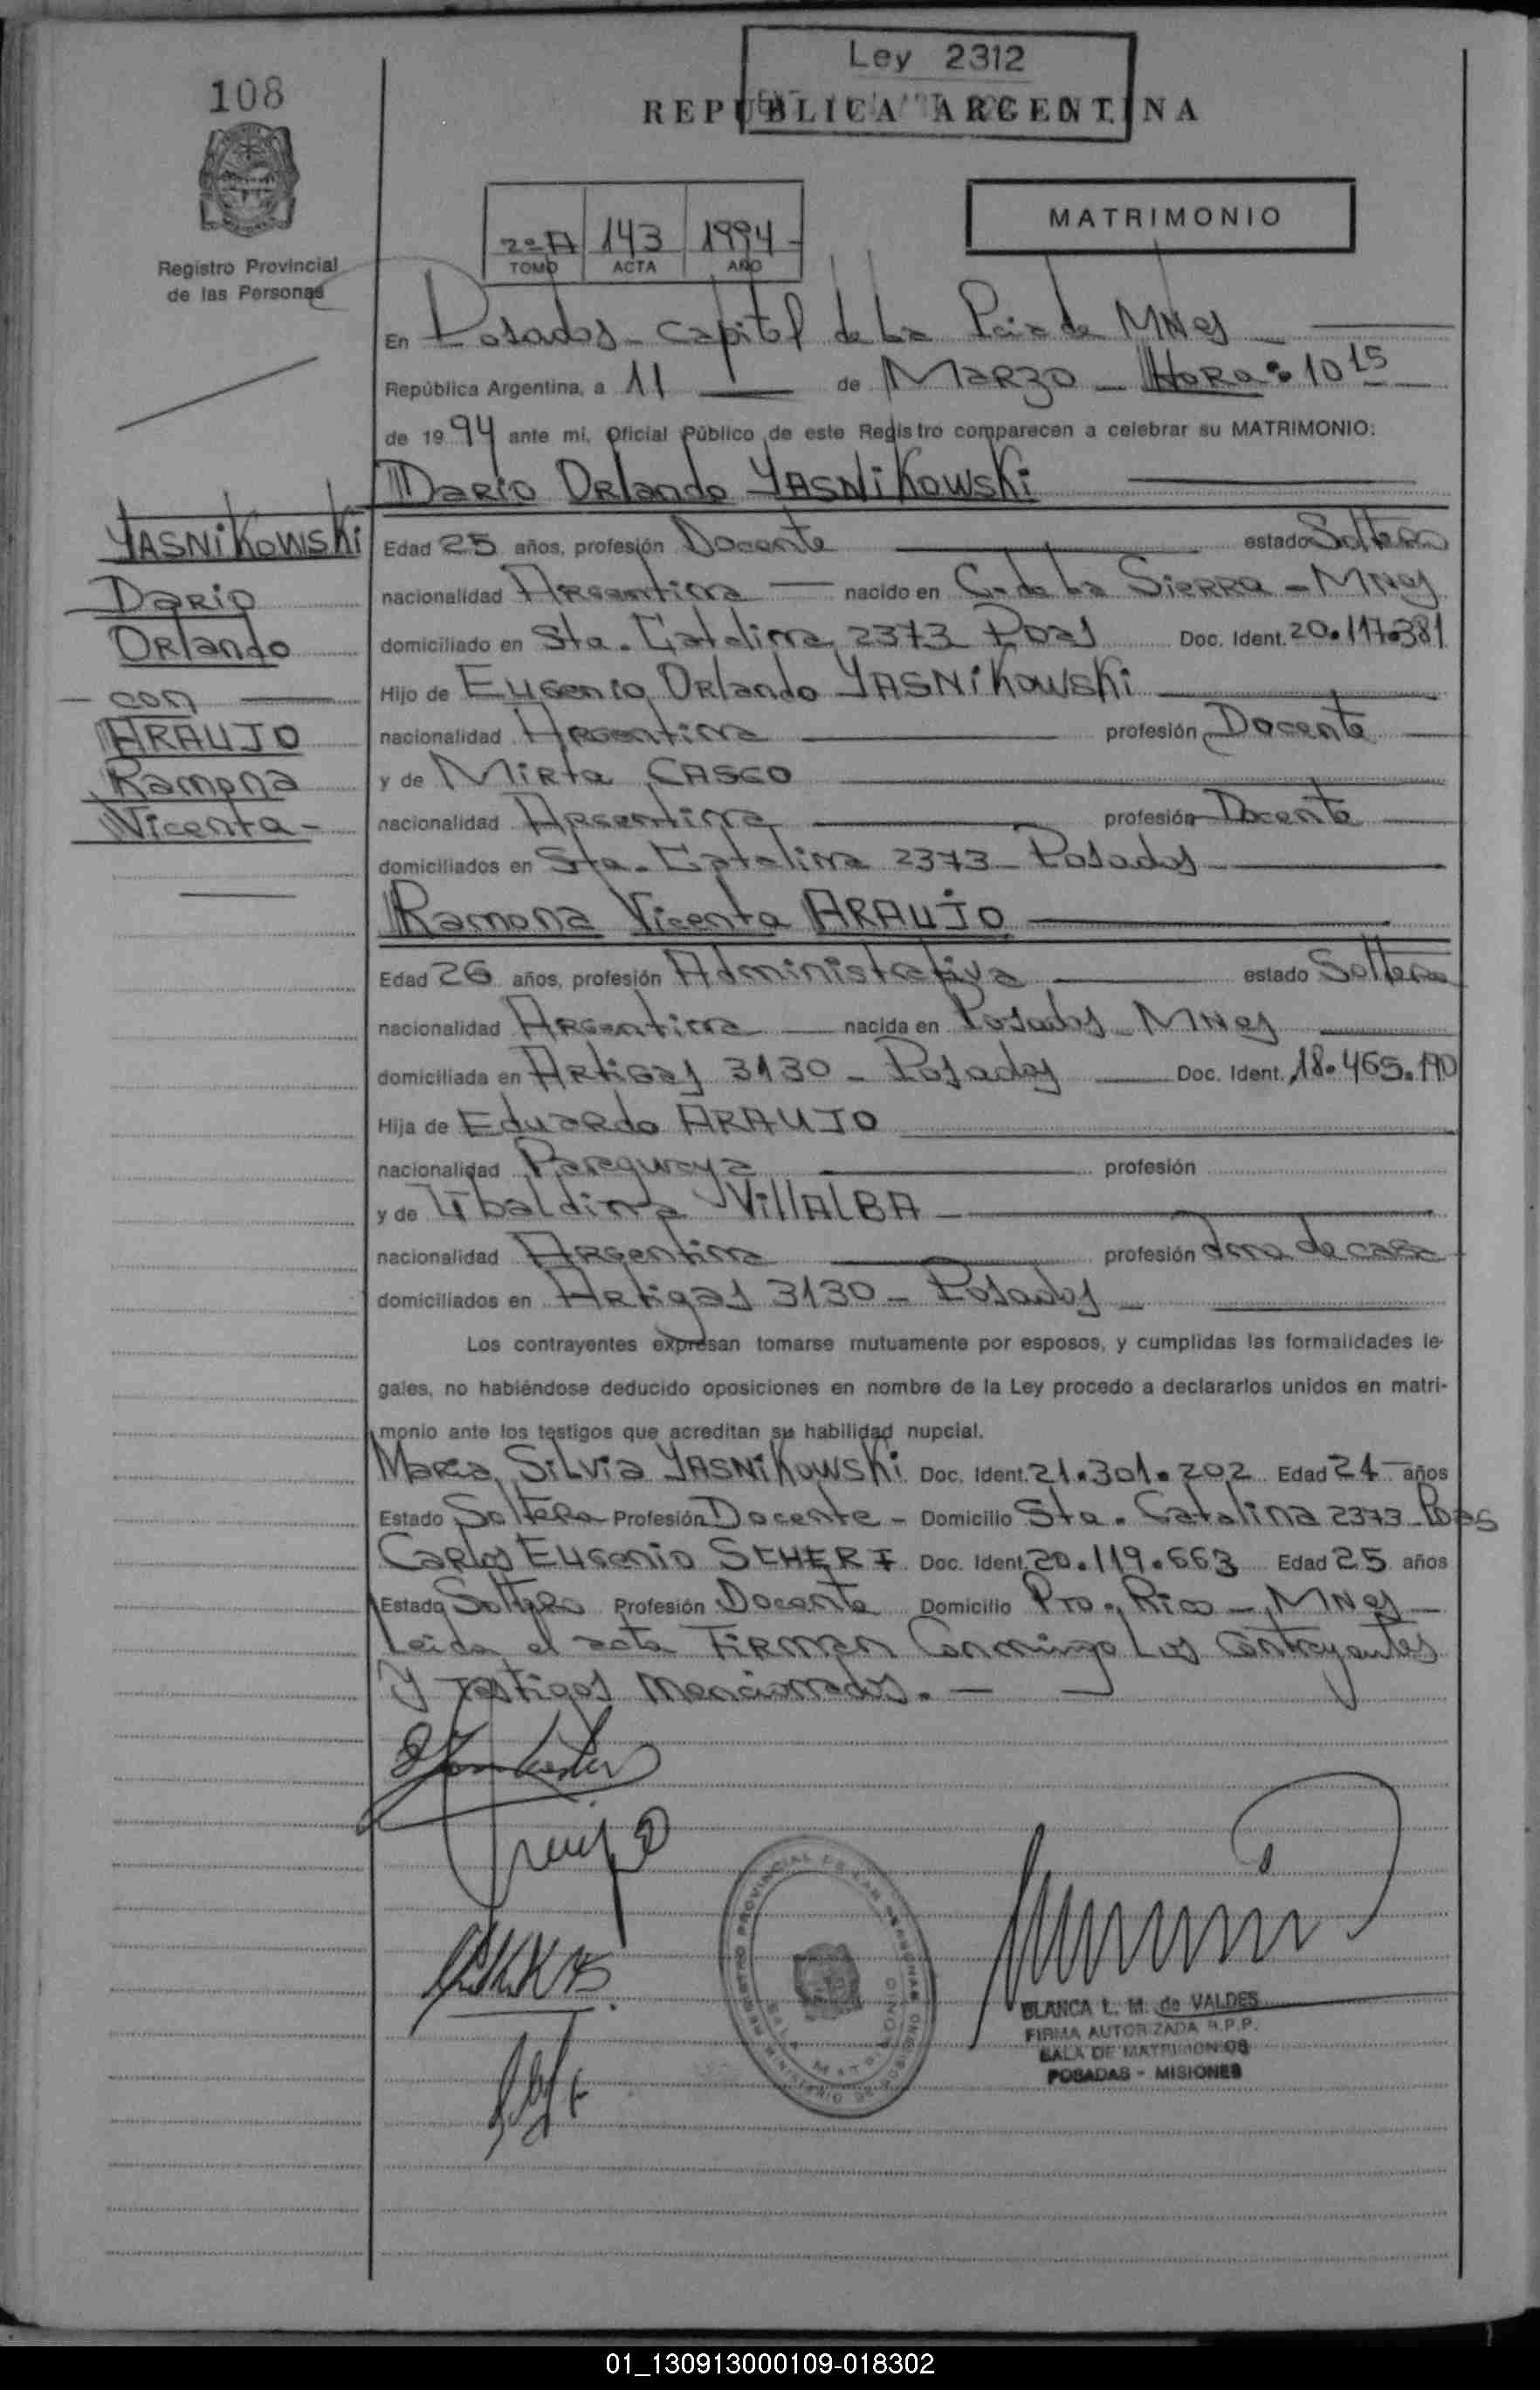 108
Ley 2312
REPUBLICA ARGENTINA
Registro Provincial
de las Personas
2º A 143 1994 -
TOMO ACTA AÑO
MATRIMONIO
En Posadas - Capital de La Pcia de MNes
República Argentina, a 11 de Marzo - Hora: 10 15
de 19 94 ante mi, Oficial Público de este Registro comparecen a celebrar su MATRIMONIO:
Dario Orlando YASNiKowski
YASNiKowski
Dario
Orlando
- con
ARAUJO
Ramona
Vicenta -
Edad 25 años, profesión Docente estado Soltero
nacionalidad Argentina nacido en C. de La Sierra - MNes
domiciliado en Sta. Catalina 2373 Pdas Doc. Ident. 20.117.381
Hijo de Eugenio Orlando YASNiKowski
nacionalidad Argentina profesión Docente
y de Mirta CASCO
nacionalidad Argentina profesión Docente
domiciliados en Sta. Catalina 2373 - Posadas
Ramona Vicenta ARAUJO
Edad 26 años, profesión Administrativa estado Soltera
nacionalidad Argentina nacida en Posados MNes
domiciliada en Artigas 3130 - Posadas Doc. Ident. 18.465.190
Hija de Eduardo ARAUJO
nacionalidad Paraguaya profesión
y de Ubaldina VillALBA
nacionalidad Argentina profesión Ama de casa
domiciliados en Artigas 3130 - Posadas
Los contrayentes expresan tomarse mutuamente por esposos, y cumplidas las formalidades le-
gales, no habiéndose deducido oposiciones en nombre de la Ley procedo a declararlos unidos en matri-
monio ante los testigos que acreditan su habilidad nupcial.
Maria Silvia YASNiKowski Doc. Ident. 21.301.202 Edad 24 años
Estado Soltera Profesión Docente - Domicilio Sta. Catalina 2373 - Pdas
Carlos Eugenio SCHERF Doc. Ident. 20.119.663 Edad 25 años
Estado Soltero Profesión Docente Domicilio Pto. Rico - MNes -
Leida el acta Firman Conmingo Los Contrayentes
Y Testigos Mencionados. -
REGISTRO PROVINCIAL DE LAS PERSONAS
SALA MATRIMONIO
BLANCA L. M. de VALDES
FIRMA AUTORIZADA R.P.P.
SALA DE MATRIMONIOS
POSADAS - MISIONES
01_130913000109-018302